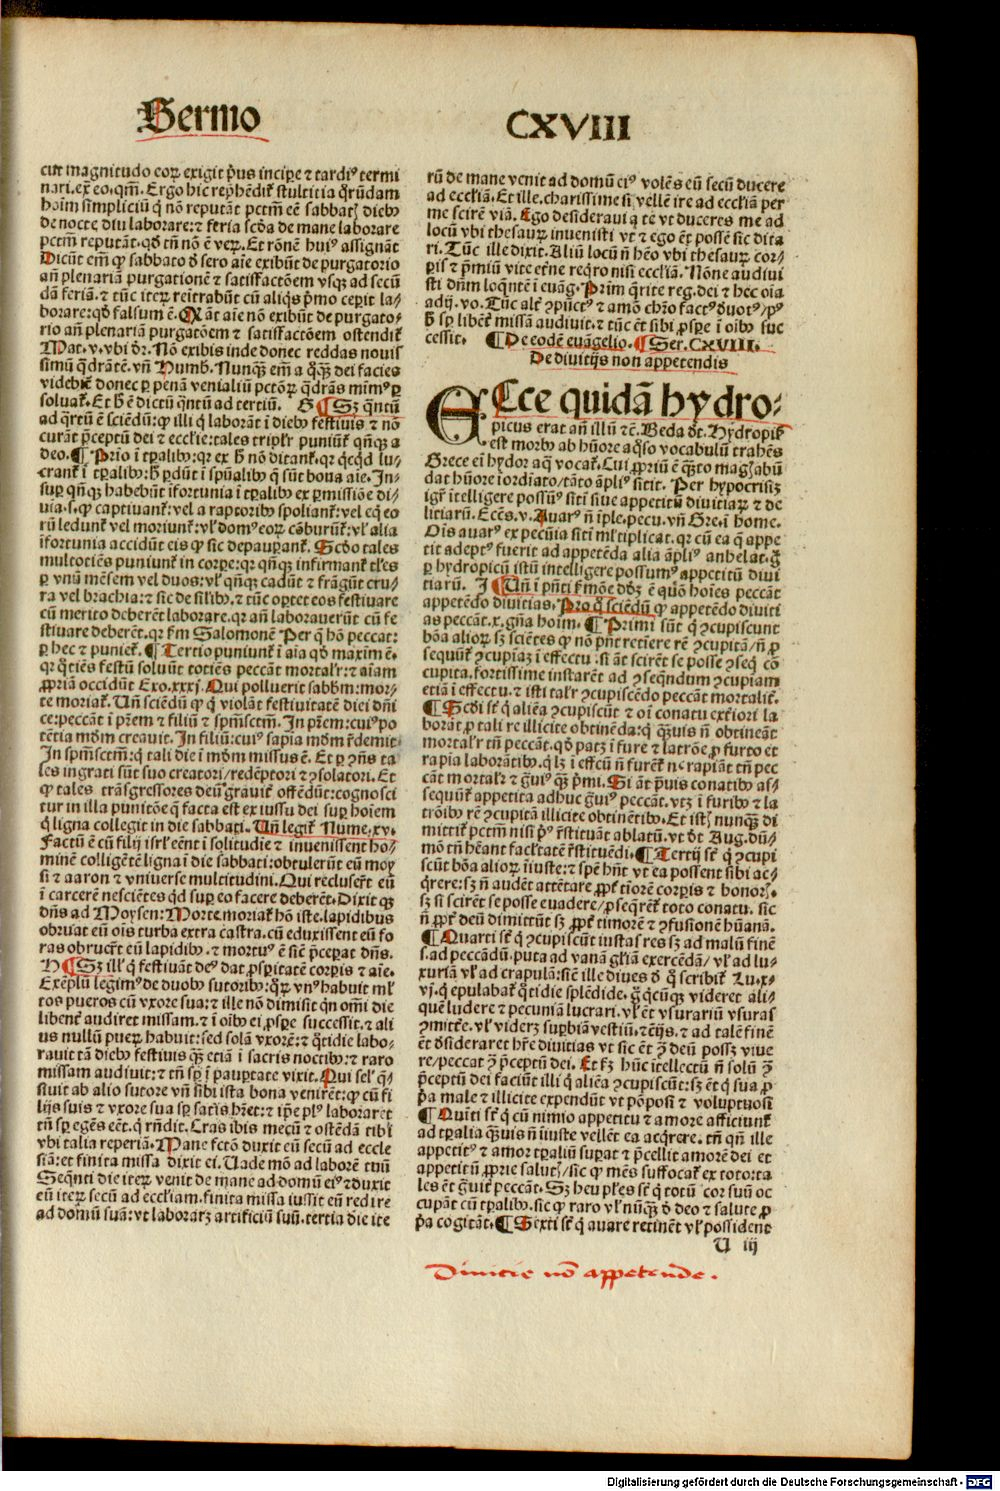 Sermo CXVIII
cut magnitudo corꝝ exigit pͥus incipe ⁊ tardiꝰ termi
nari. ex eo. qm̄. Ergo hic rep̄hēdit̄ stultitia q̄rūdam
hoīm simpliciū q̄ nō reputāt pctm̄ eē sabbatꝫ diebꝰ
de nocte diu laborare: ⁊ feria scd̄a de mane laborare
pctm̄ reputāt. qd̓ tn̄ nō ē veꝝ. Et rōnē huiꝰ assignāt
Dicūt em̄ ꝙ sabbato d̓ sero aīe exibūt de purgatorio
an̄ plenariā purgationē ⁊ satisfactōem vsqꝫ ad secū
dā feriā. ⁊ tūc iteꝝ reītrabūt cū aliq̄s pͥmo ceꝑit la-
borare: qd̓ falsum ē. Q̄ āt aīe nō exibūt de purgato-
rio an̄ plenariā purgatōem ⁊ satisfactōem ostendit̄
Mat. v. vbi dr̄. Nō exibis inde donec reddas nouis
simū q̄drātē. vn̄ Humb. Nunqꝫ em̄ a q̄qꝫ dei facies
videbit̄ donec ꝑ penā venialiū pctōꝝ q̄drās mīmꝰ ꝑ
soluat̄. Et h̓ ē dictū q̄ntū ad tertiū. G ¶ Sꝫ q̄ntū
ad q̄rtū ē sciēdū: ꝙ illi q̄ laborāt ī diebꝰ festiuis ⁊ nō
curāt p̄ceptū dei ⁊ eccl̓ie: tales tripl̓r puniūt̄ qn̄qꝫ a
deo. ¶ Prīo ī tꝑalibꝰ: qr ex h̓ nō ditant̄. qr q̄cqd lu-
crant̄ ī tꝑalibꝰ: h̓ ꝑdūt ī spūalibꝰ q̄ sūt bona aīe. In-
suꝑ qn̄qꝫ habebūt īfortunia ī tꝑalibꝰ ex ꝑmissiōe di-
uia. s. ꝙ captiuant̄: vel a raptoribꝰ spoliant̄: vel eq̄ eo
rū ledunt̄ vel moriunt̄: vl̓ domꝰ eoꝝ cōburūt̄: vl̓ alia
īfortunia accidūt eis ꝙ sic depauꝑant̄. Scd̓o tales
multoties puniunt̄ in corꝑe: qr qn̄qꝫ infirmant̄ tl̓es
ꝑ vnū mēsem vel duos: vl̓ qn̄qꝫ cadūt ⁊ frāgūt cru-
ra vel brachia: ⁊ sic de silibꝰ. ⁊ tūc oꝑtet eos festiuare
cū merito deberēt laborare. qr an̄ laborauerūt cū fe
stiuare deberēt. qr fm Salomonē Per q̄ hō peccat:
ꝑ hec ⁊ puniet̄. ¶ Tertio puniunt̄ ī aīa qd̓ maxīm ē.
qr q̄tiēs festū soluūt totiēs peccāt mortal̓r: ⁊ aīam
ꝓpriā occidūt Exo. xxxj. Qui polluerit sabbm̄: mor-
te moriat̄. Un̄ sciēdū ꝙ q̄ violāt festiuitatē diei dn̄i
ce: peccāt ī pr̄em ⁊ filiū ⁊ spm̄sctm̄. In pr̄em: cuiꝰ po
tētia mōm creauit. In filiū: cuiꝰ sapīa mōm r̄demit
In spm̄sctm̄: q̄ tali die ī mōm missus ē. Et ꝑ ꝯn̄s ta
les ingrati sūt suo creatori / redēptori ⁊ ꝯsolatori. Et
ꝙ tales trāsgressores deū grauit̄ offēdūt: cognosci
tur in illa punitōe q̄ facta est ex iussu dei suꝑ hoīem
q̄ ligna collegit in die sabbati. Un̄ legit̄ Nume. xv.
Factū ē cū filij isrl̓ eēnt ī solitudīe ⁊ inuenissent ho-
minē colligētē ligna ī die sabbati: obtulerūt eū moy
si ⁊ aaron ⁊ vniuerse multitudini. Qui recluserūt eū
ī carcerē nesciētes qd suꝑ eo facere deberēt. Dixit qꝫ
dn̄s ad Moysen: Morte moriat̄ hō iste. lapidibus
obruat eū oīs turba extra castra. cū eduxissent eū fo
ras obruerūt eū lapidibꝰ. ⁊ mortuꝰ ē sic̄ p̄ceꝑat dn̄s.
H ¶ Sꝫ ill̓ q̄ festiuāt deꝰ dat ꝓsperitatē corꝑis ⁊ aīe.
Exēplū legimꝰ de duobꝰ sutoribꝰ: qꝝ vnꝰ habuit ml̓
tos pueros cū vxore sua: ⁊ ille nō dimisit qn̄ om̄i die
libent̄ audiret missam. ⁊ ī oībꝰ ei ꝓsꝑe successit. ⁊ ali
us nullū pueꝝ habuit: sed solā vxorē: ⁊ q̄tidie labo-
rauit tā diebꝰ festiuis qꝫ etiā ī sacris noctibꝰ: ⁊ raro
missam audiuit: ⁊ tn̄ sꝑ ī pauꝑtate vixit. Qui sel̓ q̄-
siuit ab alio sutore vn̄ sibi ista bona venirēt: ꝙ cū fi
lijs suis ⁊ vxore sua sꝑ satis hēt: ⁊ ip̄e plꝰ laboraret
tn̄ sꝑ egēs eēt. q̄ rn̄dit. Cras ibis mecū ⁊ ostēdā tibi
vbi talia reperiā. Mane fctō duxit eū secū ad eccle
siā: et finita missa dixit ei. Uade mō ad laborē tuū
Seq̄nti die iteꝝ venit de mane ad domū eiꝰ ⁊ duxit
eū iteꝝ secū ad eccl̓iam. finita missa iussit eū redire
ad domū suā: vt laboraꝫ artificiū suū. tertia die ite
rū de mane venit ad domū eiꝰ volēs eū secū ducere
ad eccl̓iā. Et ille. charissime si vellē ire ad eccl̓iā per
me scirē viā. Ego desideraui a te vt duceres me ad
locū vbi thesauꝝ inuenisti vt ⁊ ego ēt possē sic dita
ri. Tūc ille dixit. Aliū locū n̄ hēo vbi thesauꝝ cor-
ꝑis ⁊ p̄miū vite etn̄e req̄ro nisi eccl̓iā. Nōne audiui
sti dn̄m loq̄ntē ī euāg. Prim̄ q̄rite reg. dei ⁊ hec oīa
adij. vo. Tūc alt̓ ꝯpūctꝰ ⁊ amō chr̄o factꝰ d̓uotꝰ / pꝰ
h̓ sꝑ libent̄ missā audiuit. ⁊ tūc ēt sibi ꝓsꝑe ī oībꝰ suc
cessit. ¶ De eodē euāgelio. ¶ Ser. CXVIII.
De diuitijs non appetendis
ECce quidā hydro-
picus erat an̄ illū ⁊c̄. Beda d̓t. Hydropis̄
est morbꝰ ab hūore aq̄so vocabulū trahēs
Grece eī hydor aq̄ vocat̄. Cui ꝓpriū ē qꝫto magꝭ abū
dat hūore īordiato / tāto āpliꝰ sitit. Per hypocrisīꝫ
igr̄ ītelligere possūꝰ siti siue appetitū diuitiaꝝ ⁊ de
litiarū. Ecc̄s. v. Auarꝰ n̄ īple. pecu. vn̄ Gre. ī home.
Oīs auarꝰ ex pecūia sitī ml̓tiplicat. qr cū ea q̄ appe
tit adeptꝰ fuerit ad appetēda alia āpliꝰ anhelat. g̊
ꝑ hydropicū istū intelligere possumꝰ appetitū diui
tiarū. I ¶ Un̄ ī pn̄ti s̄mōe d̓dꝫ ē quō hoīes peccāt
appetēdo diuitias. Pro q̊ sciēdū ꝙ appetēdo diuiti
as peccāt. x. gn̄a hoīm. ¶ Primi sūt q̄ ꝯcupiscunt
bōa alioꝝ sꝫ sciētes ꝙ nō pn̄t retiere rē ꝯcupitā / n̄ ꝓ
sequūt̄ ꝯcupīaꝫ ī effectu: si āt scirēt se posse ꝯseq̄ cō
cupita. fortissime instarēt ad ꝯseq̄ndum ꝯcupiam
etiā ī effectu. ⁊ isti tal̓r ꝯcupiscēdo peccāt mortalit̄.
¶ Scd̓i st̄ q̄ aliēa ꝯcupiscūt ⁊ oī conatu exteriori la
borāt ꝓ tali re illicite obtinēda: q̄ qꝫuis n̄ obtineāt
mortal̓r tn̄ peccāt. qd̓ patꝫ ī fure ⁊ latrōe ꝓ furto et
rapia laborātibꝰ. q̄ lꝫ ī effcū n̄ furēt̄ ne rapiāt tn̄ pec
cāt mortal̓r ⁊ g̃uiꝰ qꝫ pͥmi. Si āt pͥuis conatibꝰ as-
sequūt̄ appetita adhuc g̃uiꝰ peccāt. vtꝫ ī furibꝰ ⁊ la
trōibꝰ rē ꝯcupitā illicite obtinētibꝰ. Et istꝫ nunqꝫ di
mittit̄ pctm̄ nisi pͥꝰ r̄stituāt ablatū. vt d̓t Aug. dū-
mō tn̄ hēant facl̓tatē r̄stituēdi. ¶ Tertij st̄ q̄ ꝯcupi
scūt bōa alioꝝ īiuste: ⁊ spē hn̄t vt ea possent sibi ac-
q̄rere: sꝫ n̄ audēt attētare ꝓpt̄ tīorē corꝑis ⁊ honorꝭ.
sꝫ si scirēt se posse euadere / ꝓseq̄rēt̄ toto conatu. sic
n̄ ꝓpt̄ deū dimittūt sꝫ ꝓpt̄ timorē ⁊ ꝯfusionē hūanā.
¶ Quarti st̄ q̄ ꝯcupiscūt iustas res sꝫ ad malū finē
s. ad peccādū. puta ad vanā gl̓iā exercēdā / vl̓ ad lu-
xuriā vl̓ ad crapulā: sic̄ ille diues d̓ q̊ scribit̄ Lu. x-
vj. q̄ epulabat̄ q̄tidie splēdide. g̊ q̄cūqꝫ videret ali-
quē ludere ⁊ pecuniā lucrari. vl̓ ēt vsurariū vsuras
ꝯmittere. vl̓ videꝫ suꝑbiā vestiū. ⁊ c̄ijs. ⁊ ad talē finē
ēt d̓sideraret hr̄e diuitias vt sic ēt ꝯ̄ deū possꝫ viue
re / peccat ꝯ̄ p̄ceptū dei. Et fꝫ hūc itellectū n̄ solū ꝯ̄
p̄ceptū dei faciūt illi q̄ aliēa ꝯcupiscūt: sꝫ ēt q̄ sua ꝓ
pͥa male ⁊ illicite expendūt vt pōposi ⁊ voluptuosi
¶ Quīti st̄ q̄ cū nimio appetitu ⁊ amore afficiunt̄
ad tꝑalia qꝫuis n̄ īiuste vellēt ea acq̄rere. tn̄ qn̄ ille
appetitꝰ ⁊ amor tꝑaliū suꝑat ⁊ p̄cellit amorē dei et
appetitū ꝓprie salutꝭ / sic ꝙ mēs suffocat̄ ex toto: ta
les ēt g̃uit̄ peccāt. Sꝫ heu pl̓es st̄ q̄ totū cor suū oc
cupāt cū tꝑalibꝰ. sic ꝙ raro vl̓ nūqꝫ d̓ deo ⁊ salute ꝓ
pͥa cogitāt. ¶ Sexti st̄ q̄ auare retinēt vl̓ possident
U iij
Diuicie nō appetende.
Digitalisierung gefördert durch die Deutsche Forschungsgemeinschaft - DFG